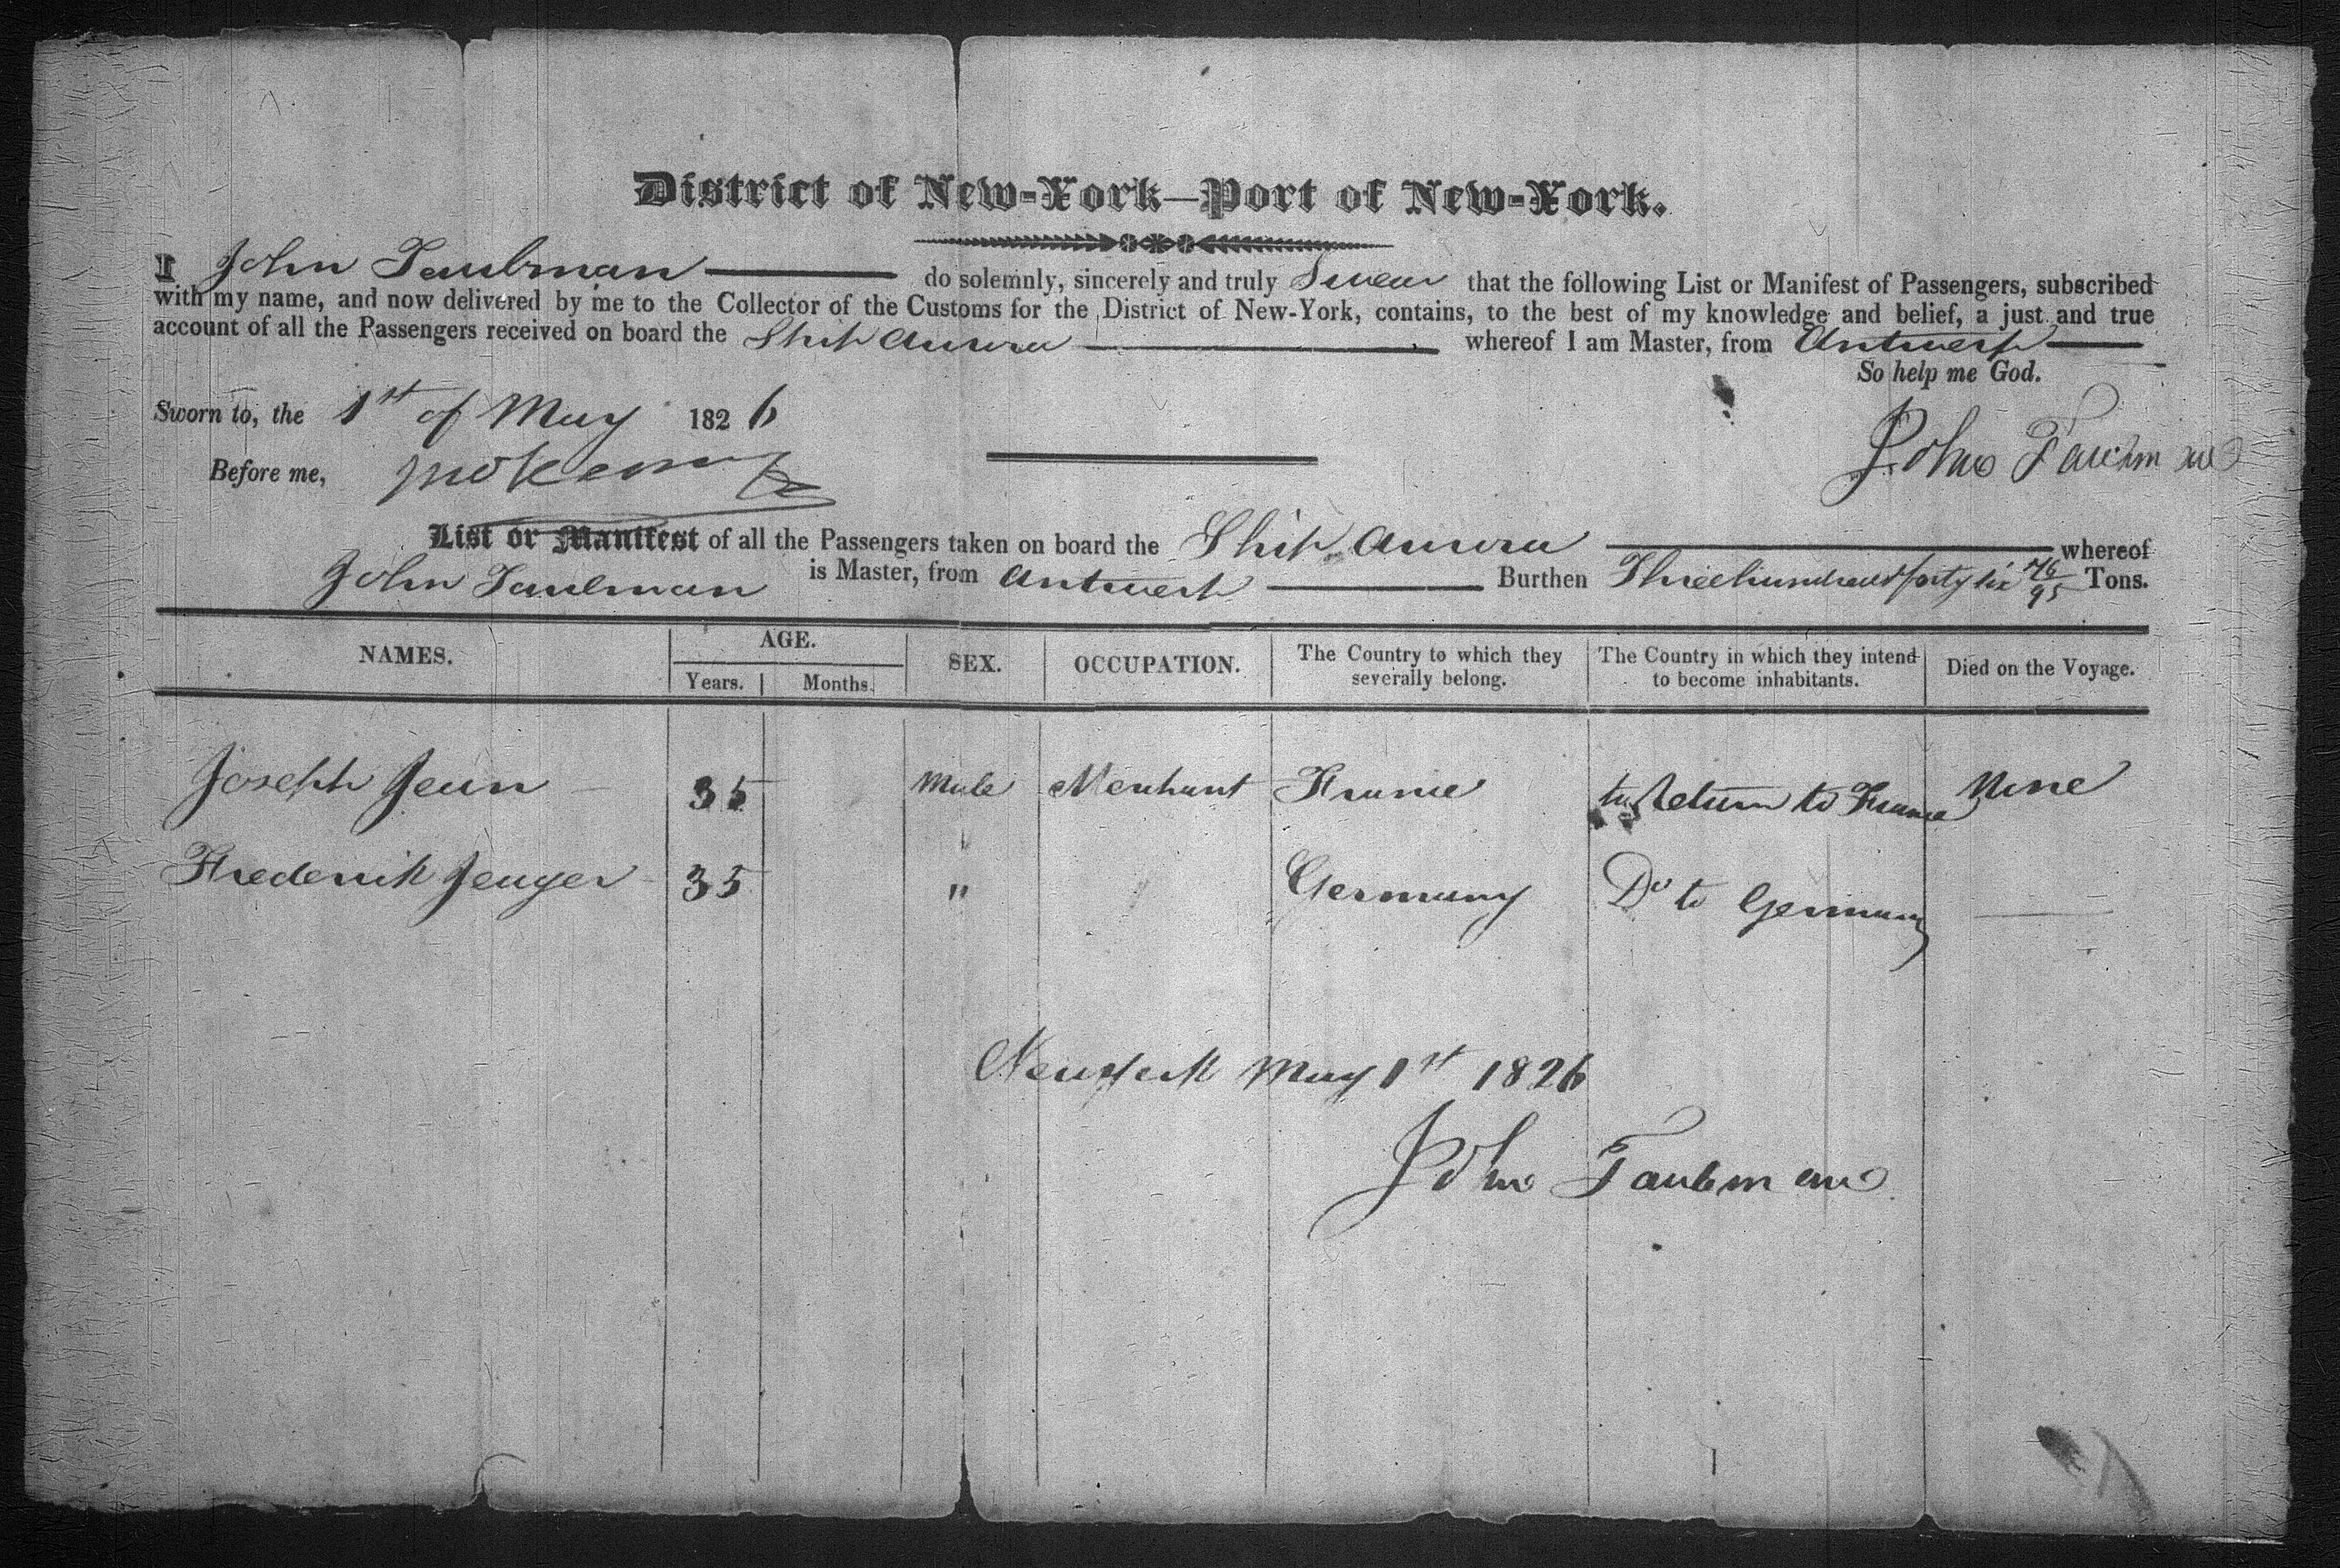 District of New-York—Port of New-York.
I John Taubman do solemnly, sincerely and truly Swear that the following List or Manifest of Passengers, subscribed
with my name, and now delivered by me to the Collector of the Customs for the District of New-York, contains, to the best of my knowledge and belief, a just and true
account of all the Passengers received on board the Ship Aurora whereof I am Master, from Antwerp
So help me God.
Sworn to, the 1st of May 1826
John Taubman
Before me,
List or Manifest of all the Passengers taken on board the Ship Aurora whereof
John Taubman is Master, from Antwerp Burthen Three hundred forty six 76/95 Tons.
NAMES. AGE. SEX. OCCUPATION. The Country to which they severally belong. The Country in which they intend to become inhabitants. Died on the Voyage.
Years. Months.
Joseph Jean 35 Male Merchant France to Return to France None
Frederick Jenger 35 " Germany Do to Germany
New York May 1st 1826
John Taubman